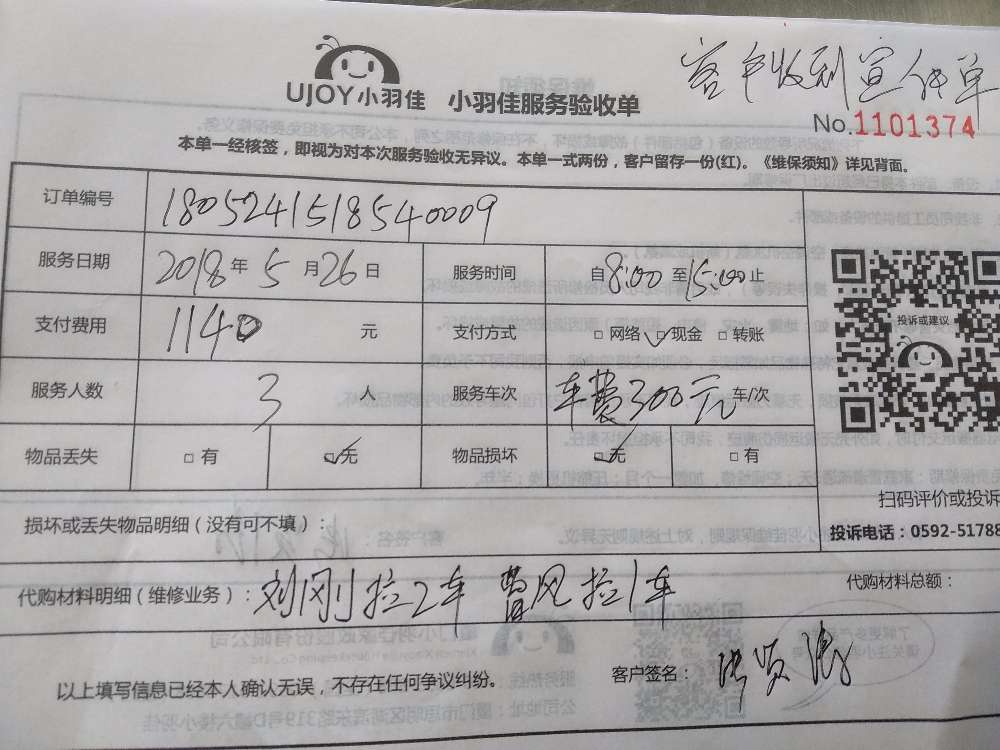 客户收到宣传单
UJOY小羽佳 小羽佳服务验收单
No.1101374
本单一经核签，即视为对本次服务验收无异议。本单一式两份，客户留存一份(红)。《维保须知》详见背面。
订单编号 1805241518540009
服务日期 2018年5月26日 服务时间 自8:00至15:00止
支付费用 1140元 支付方式 □网络 ☑现金 □转账
投诉或建议
服务人数 3人 服务车次 车费300元车/次
物品丢失 □有 ☑无 物品损坏 ☑无 □有
扫码评价或投诉
损坏或丢失物品明细（没有可不填）：
投诉电话：0592-51788
代购材料明细（维修业务）：刘刚拉2车 曹风拉1车 代购材料总额：
以上填写信息已经本人确认无误，不存在任何争议纠纷。 客户签名：